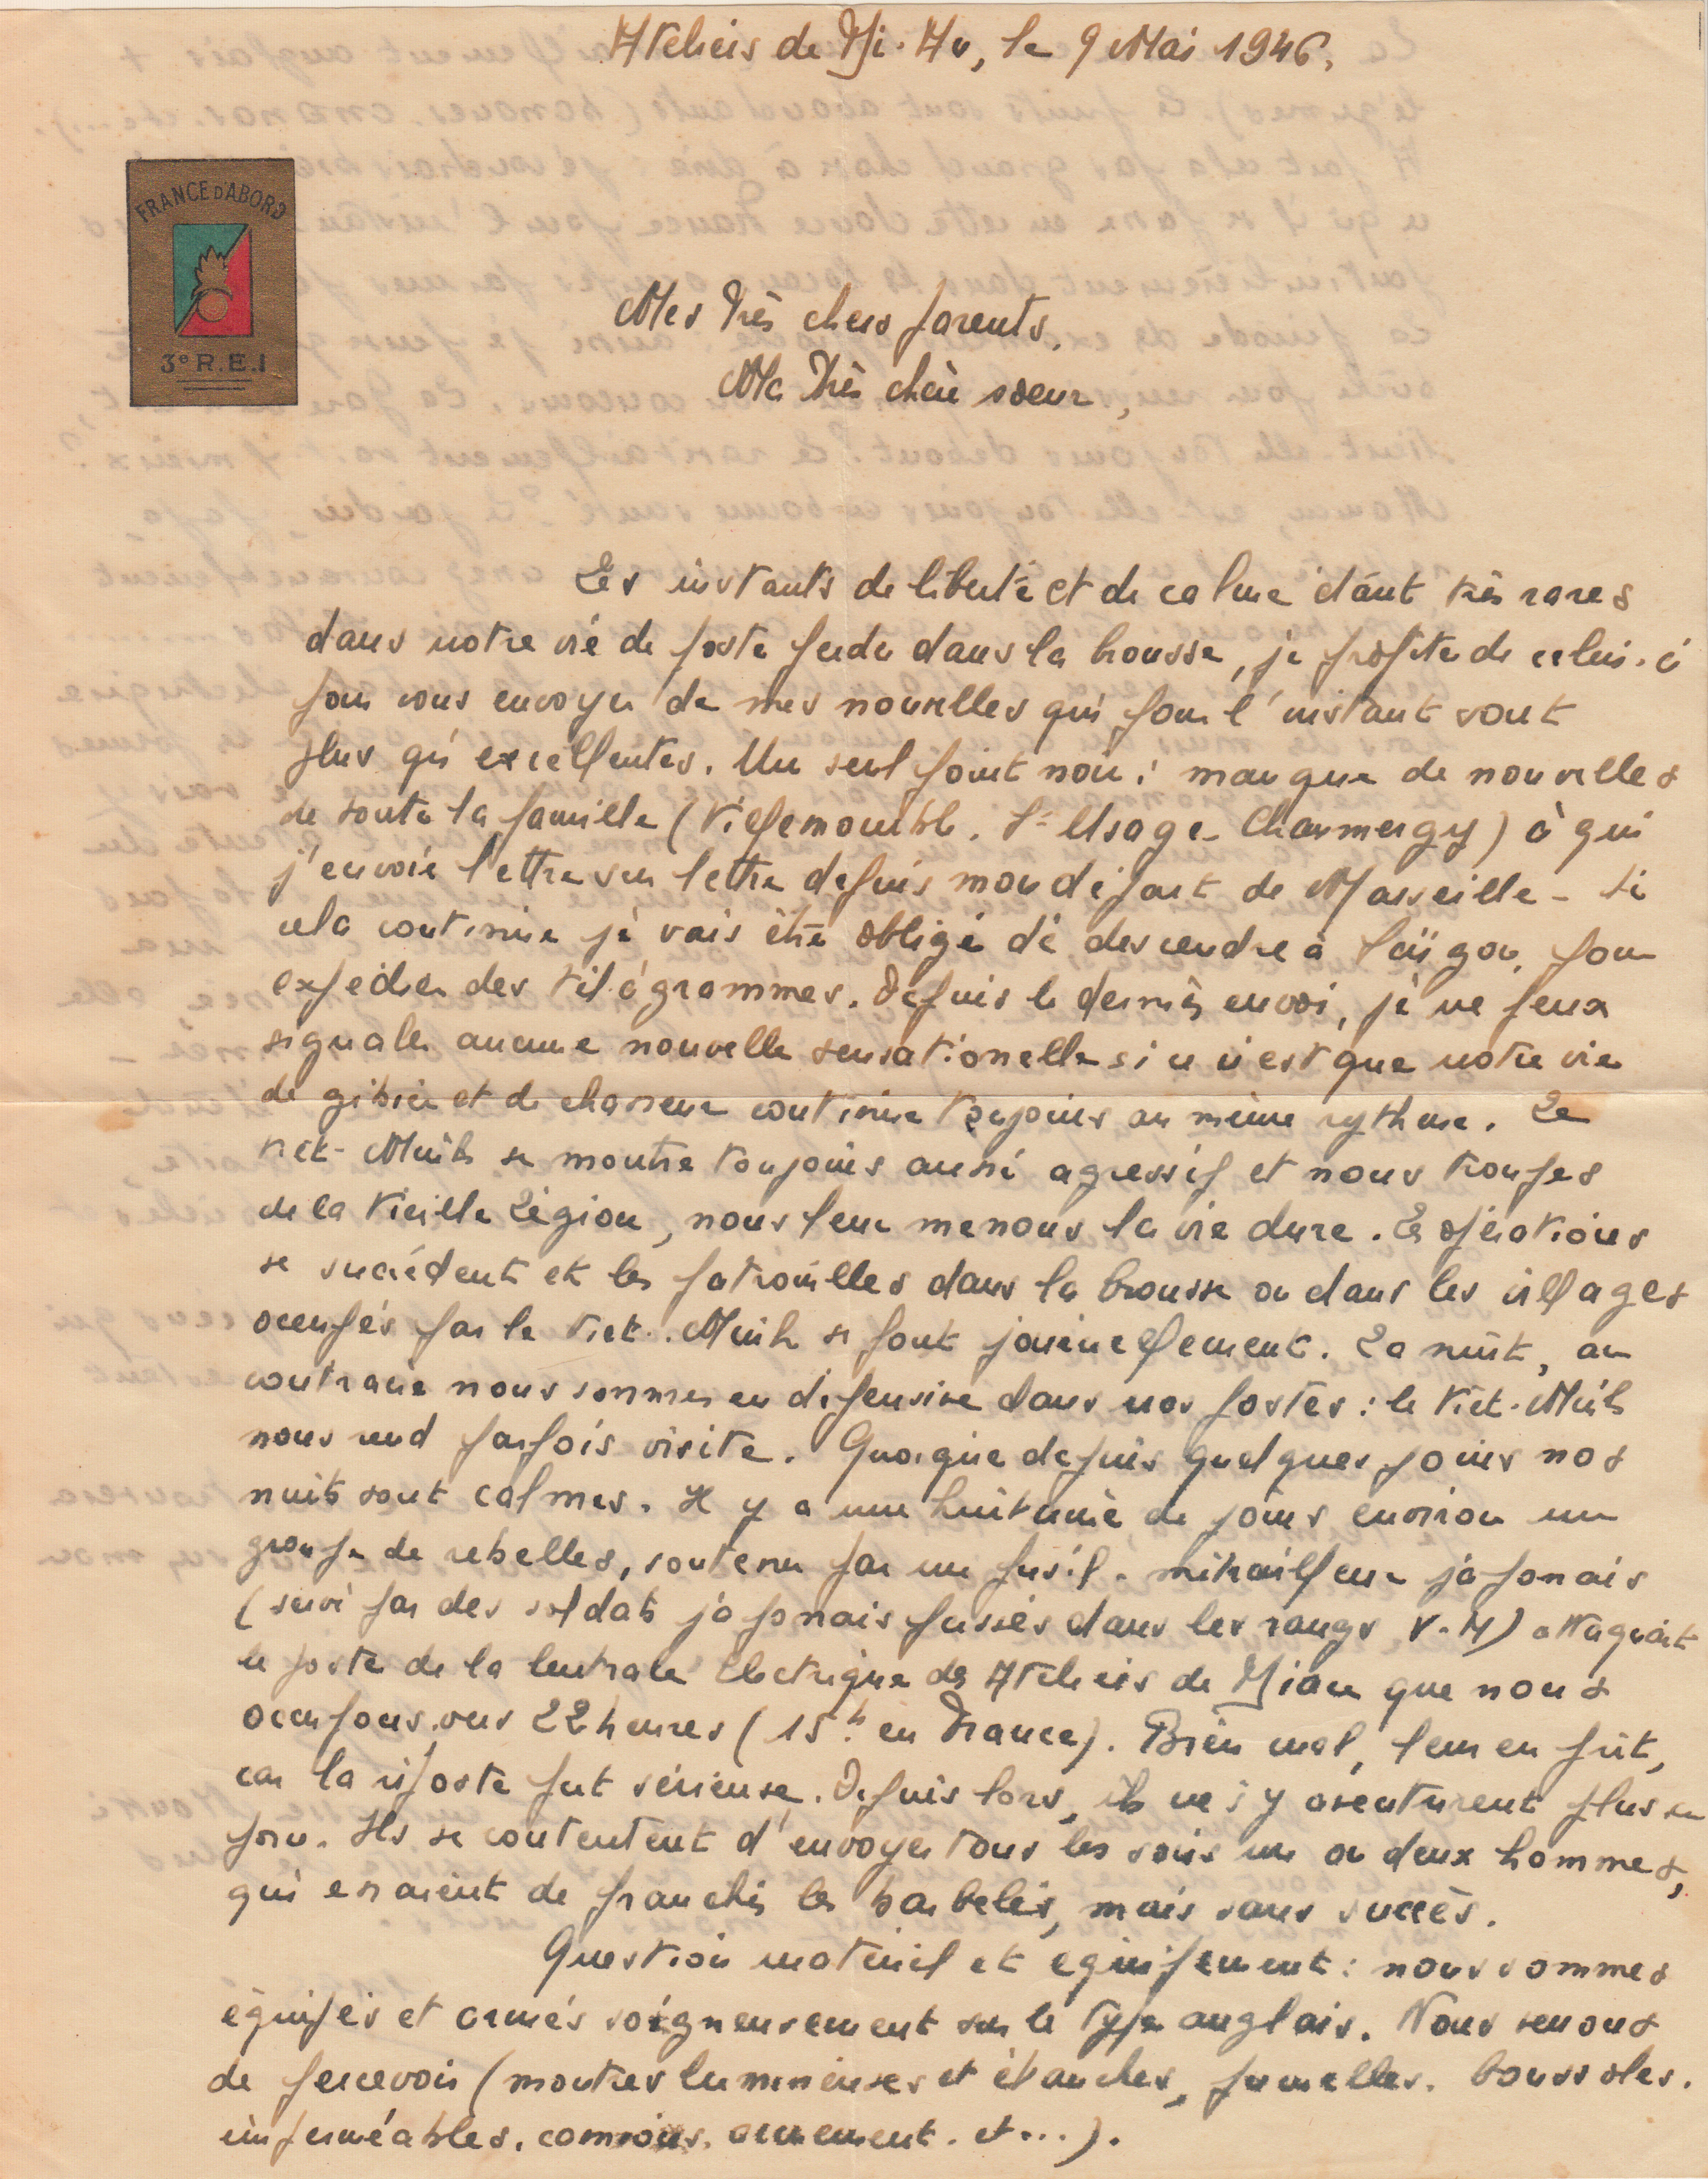 Ateliers de Di-An, le 9 Mai 1946.
FRANCE D'ABORD
3e R.E.I
Mes très chers parents,
Ma très chère soeur,
Les instants de liberté et de calme étant très rares
dans notre vie de poste perdu dans la brousse, je profite de celui-ci
pour vous envoyer de mes nouvelles qui pour l'instant sont
plus qu'excellentes. Un seul point noir: manque de nouvelles
de toute la famille (Villemomble. St Usage - Charmergy) à qui
j'envoie lettre sur lettre depuis mon départ de Marseille - Si
cela continue je vais être obligé de descendre à Saïgon, pour
expédier des télégrammes. Depuis le dernier envoi, je ne peux
signaler aucune nouvelle sensationelle si ce n'est que notre vie
de gibier et de chasseur continue toujours au même rythme. Le
Viet-Minh se montre toujours aussi agressif et nous troupes
de la Vieille Légion, nous leur menons la vie dure. Les opérations
se succèdent et les patrouilles dans la brousse ou dans les villages
occupés par le Viet-Minh se font journellement. La nuit, au
contraire nous sommes en défensive dans nos postes: le Viet-Minh
nous rend parfois visite. Quoique depuis quelques jours nos
nuits sont calmes. Il y a une huitaine de jours environ un
groupe de rebelles, soutenu par un fusil-mitrailleur japonais
(servi par des soldats japonais passés dans les rangs V-M) attaquait
le poste de la Centrale électrique des Ateliers de Dian que nous
occupons vers 22 heures (15h en France). Bien mal, leur en prit,
car la riposte fut sérieuse. Depuis lors, ils ne s'y aventurent plus en
force. Ils se contentent d'envoyer tous les soirs un ou deux hommes,
qui essaient de franchir les barbelés, mais sans succès.
Question matériel et équipement: nous sommes
équipés et armés soigneusement sur le type anglais. Nous venons
de percevoir (montres lumineuses et étanches, jumelles. boussoles.
imperméables. camions. armement. et...).